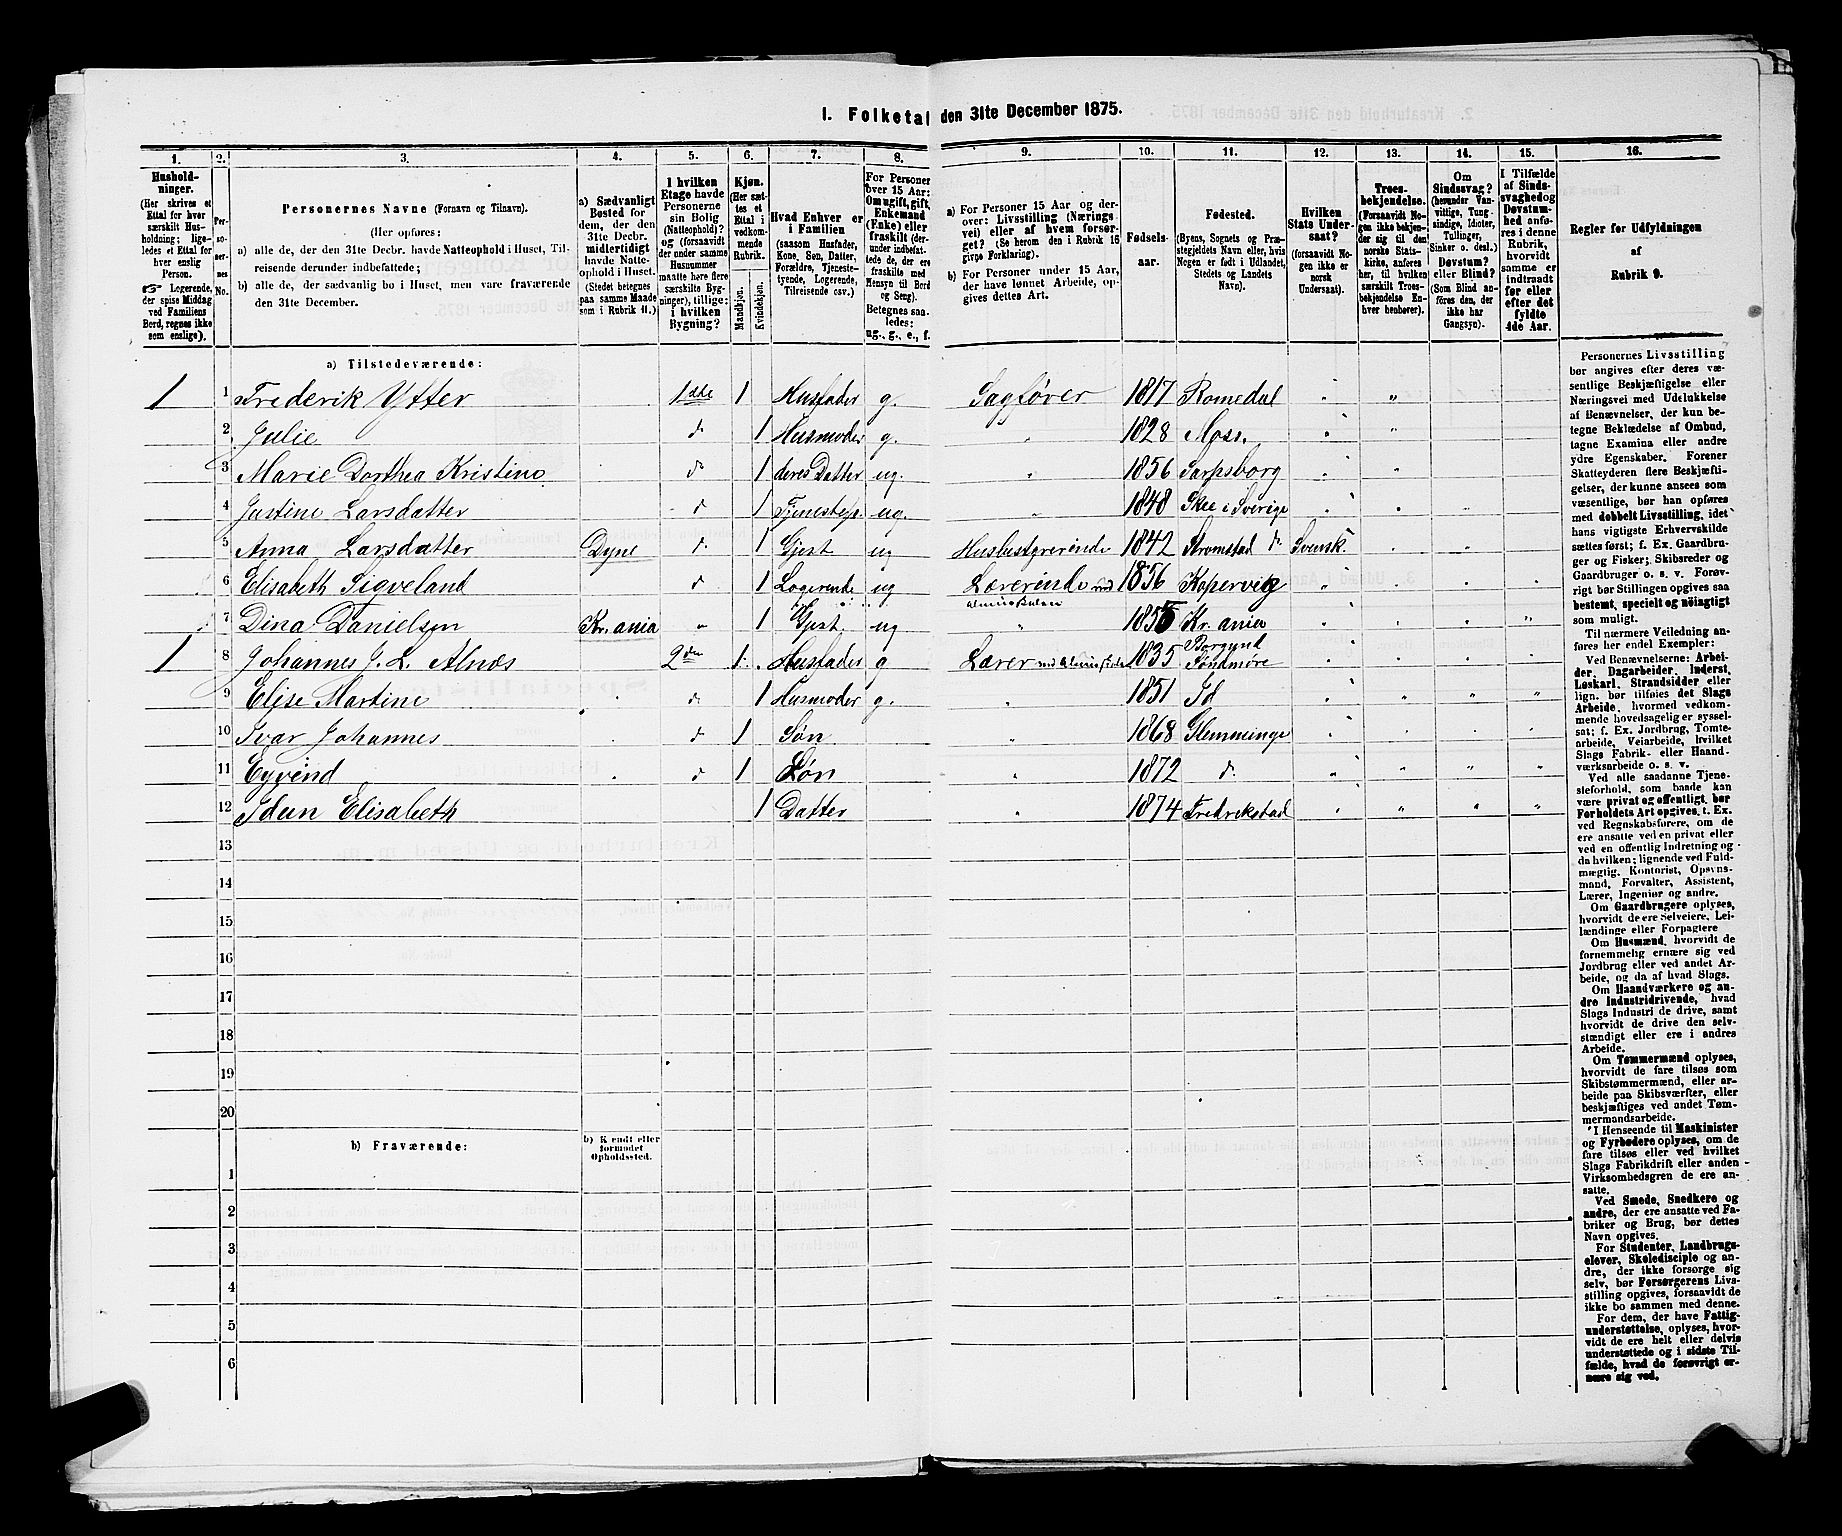 1. Folketal den 31te December 1875.
1. 2. 3. 4. 5. 6. 7. 8. 9. 10. 11. 12. 13. 14. 15. 16.
Husholdninger. (Her skrives et Ettal for hver særskilt Husholdning; ligeledes et Ettal for hver enslig Person. ☞ Logerende, der spise Middag ved Familiens Bord, regnes ikke som enslige).
Personernes No.
Personernes Navne (Fornavn og Tilnavn).
(Her opføres:
a) alle de, der den 31te Decbr. havde Natteophold i Huset, Tilreisende derunder indbefattede;
b) alle de, der sædvanlig bo i Huset, men vare fraværende den 31te December.
a) Sædvanligt Bosted for dem, der den 31te Decbr. midlertidigt havde Natteophold i Huset. (Stedet betegnes paa samme Maade som i Rubrik 11.)
I hvilken Etage havde Personerne sin Bolig (Natteophold)? og (forsaavidt der under samme Husnummer maatte høre flere særskilte Bygninger), tillige: i hvilken Bygning?
Kjøn. (Her sættes et Ettal i vedkommende Rubrik. Mandkjøn. Kvindekjøn.
Hvad Enhver er i Familien (saasom Husfader, Kone, Søn, Datter, Forældre, Tjenestetyende, Logerende, Tilreisende osv.)
For Personer over 15 Aar: Om ugift, gift, Enkemand (Enke) eller fraskilt (derunder indbefattede de, der ere fraskilte med Hensyn til Bord og Seng). Betegnes saaledes: ug., g., e., f.
a) For Personer 15 Aar og derover: Livsstilling (Næringsvei) eller af hvem forsørget? (Se herom den i Rubrik 16 givne Forklaring).
b) For Personer under 15 Aar, der have lønnet Arbeide, opgives dettes Art.
Fødselsaar.
Fødested. (Byens, Sognets og Præstegjeldets Navn eller, hvis Nogen er født i Udlandet, Stedets og Landets Navn).
Hvilken Stats Undersaat? (forsaavidt Nogen ikke er norsk Undersaat).
Troesbekjendelse. (Forsaavidt Nogen ikke bekjender sig til den norske Statskirke, anføres her, til hvilken særskilt Troesbekjendelse Enhver henhører).
Om Sindssvag? (herunder Vanvittige, Tungsindige, Idioter, Tullinger, Sinker o. desl.) Døvstum? eller Blind? (Som Blind anføres den, der ikke har Gangsyn).
I Tilfælde af Sindssvaghed og Døvstumhed anføres i denne Rubrik, hvorvidt samme er indtraadt før eller efter det fyldte 4de Aar.
Regler for Udfyldningen af Rubrik 9.
a) Tilstedeværende:
1 1 Frederik Ytter 1ste 1 Husfader g. Sagfører 1817 Romedal
2 Julie d 1 Husmoder g. 1828 Moss.
3 Marie Dorthea Kristine d 1 deres Datter ug. 1856 Sarpsborg
4 Justine Larsdatter d 1 Tjenestep. ug. 1848 Skee i Sverige
5 Anna Larsdatter Dyne d 1 Gjest ug Husbestyrerinde 1842 Stromstad d. Svensk.
6 Elisabeth Sigveland d 1 Logerende ug Lærerinde ved Almueskolen 1856 Kopervig
7 Dina Danielsen Kr. ania 1 Gjest ug 1855 Kr. ania
1 8 Johannes J. L. Alnæs 2den 1 Husfader g Lærer ved Almueskolen 1835 Borgund Søndmøre
9 Elise Martine d 1 Husmoder g. 1851 Id
10 Ivar Johannes d 1 Søn 1868 Glemminge
11 Eyvind d 1 Søn 1872 d.
12 Idun Elisabeth 1 Datter 1874 Fredrikstad
13
14
15
16
17
18
19
20
b) Fraværende: b) Kendt eller formodet Opholdssted.
1
2
3
4
5
6
Personernes Livsstilling
bør angives efter deres væsentlige
Beskjæftigelse eller
Næringsvei med Udelukkelse
af Benævnelser, der kun betegne
Beklædelse af Ombud,
tagne Examina eller andre
ydre Egenskaber. Forener
Skatteyderen flere Beskjæftigelser,
der kunne ansees som
væsentlige, bør han opføres
med dobbelt Livsstilling, idet
hans vigtigste Erhvervskilde
sættes først; f. Ex. Gaardbruger
og Fisker; Skibsreder og
Gaardbruger o. s. v. Forøvrigt
bør Stillingen opgives saa
bestemt, specielt og nøiagtigt
som muligt.
Til nærmere Veiledning anføres
her endel Exempler:
Ved Benævnelserne: Arbeider,
Dagarbeider, Inderst,
Løskarl, Strandsidder eller
lign. bør tilføies det Slags
Arbeide, hvormed vedkommende
hovedsagelig er sysselsat;
f. Ex. Jordbrug, Tomtearbeide,
Veiarbeide, hvilket
Slags Fabrik- eller Haandværksarbeide
o. s. v.
Ved alle saadanne Tjenesteforhold,
som baade kan
være privat og offentligt, bør
Forholdets Art opgives, t. Ex.
ved Regnskabsførere, om de
ere ansatte ved en privat eller
ved en offentlig Indretning og
da hvilken; lignende ved Fuldmægtig,
Kontorist, Opsynsmand,
Forvalter, Assistent,
Lærer, Ingeniør og andre.
Om Gaardbrugere oplyses,
hvorvidt de ere Selveiere, Leilændinge
eller Forpagtere
Om Husmænd, hvorvidt de
fornemmelig ernære sig ved
Jordbrug eller ved andet Arbeide,
og da af hvad Slags.
Om Haandværkere og andre
Industridrivende, hvad
Slags Industri de drive, samt
hvorvidt de drive den selvstændigt
eller ere i andres
Arbeide.
Om Tømmermænd oplyses,
hvorvidt de fare tilsøs som
Skibstømmermænd, eller arbeide
paa Skibsværfter, eller
beskjæftiges ved andet Tømmermandsarbeide.
I Henseende til Maskinister
og Fyrbødere oplyses, om de
fare tilsøs eller ved hvilket
Slags Fabrikdrift eller anden
Virksomhedsgren de ere ansatte.
Ved Smede, Snedkere og
andre, der ere ansatte ved Fabriker
og Brug, bør dettes
Navn opgives.
For Studenter, Landbrugselever,
Skoledisciple og andre,
der ikke forsørge sig
selv, bør Forsørgerens Livsstilling
opgives, forsaavidt de
ikke bo sammen med denne.
For dem, der have Fattigunderstøttelse,
oplyses, hvorvidt
de ere helt eller delvis
understøttede og i sidste Tilfælde,
hvad de forøvrigt ernære
sig ved.